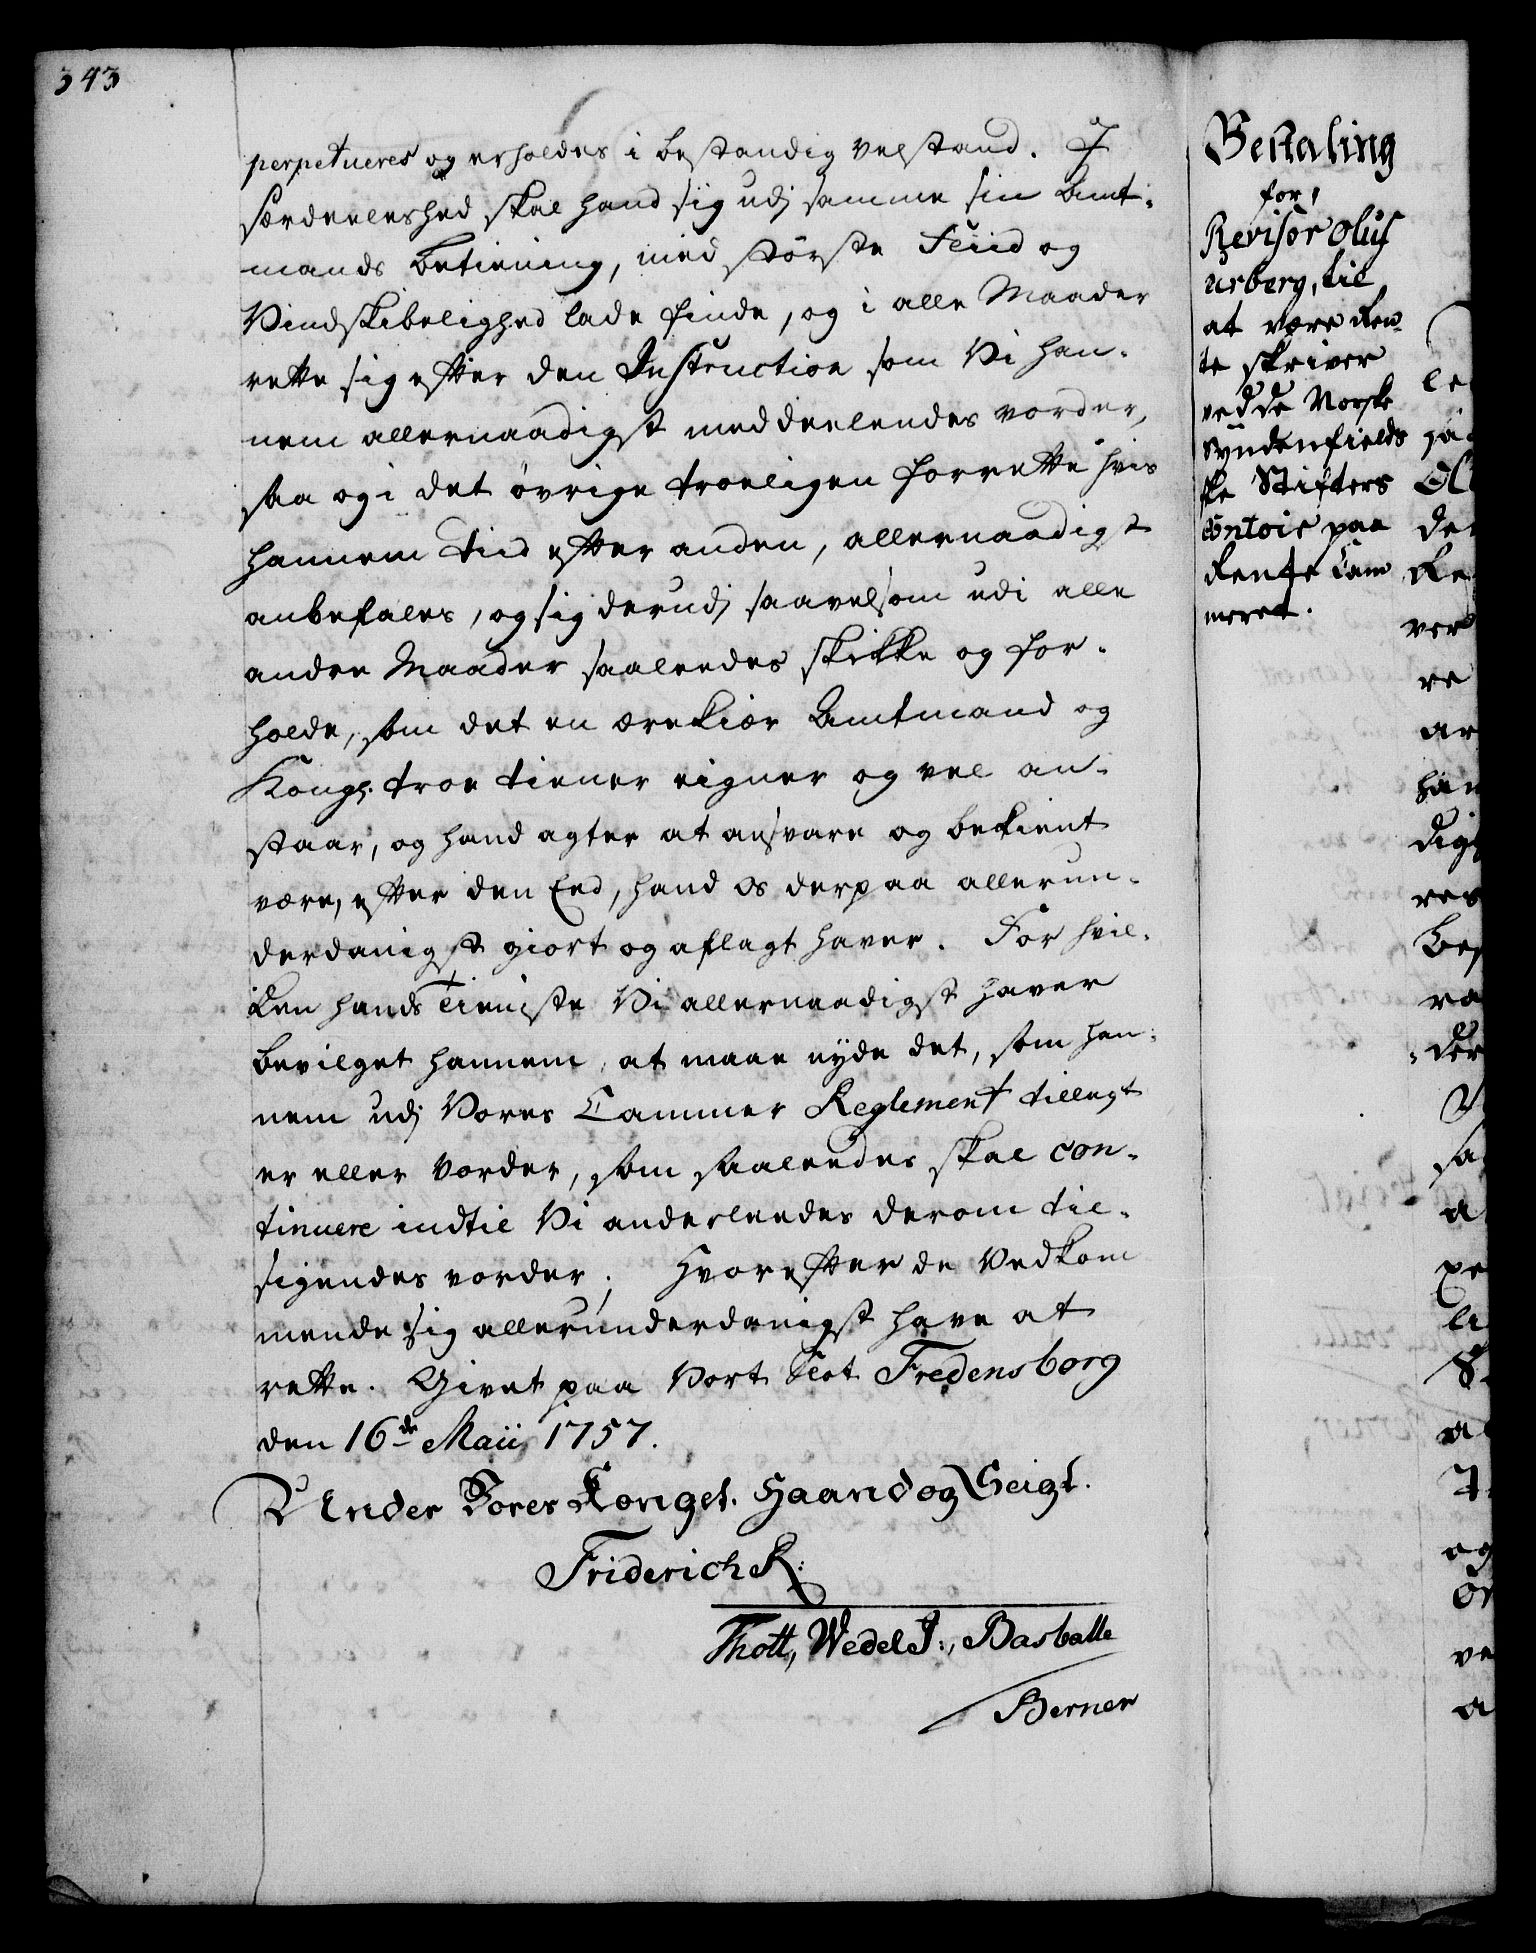 343
perpetueres og erholdes i bestandig velstand. I
særdeeleshed skal hand sig udj samme sin Amt-
mands betiening, med største Fliid og
Vindskibelighed lade finde, og i alle Maader
rette sig efter den Instruction som Vi han-
nem allernaadigst meddeelendes vorder,
saa og i det øvrige troeligen forrette hvis
hannem tiid efter anden, allernaadigst
anbefales, og sig derudj saavelsom udi alle
andre Maader saaleedes skikke og for-
holde, som det en ærekiær Amtmand og
Kongl. troe tiener eigner og vel an-
staar, og hand agter at ansvare og bekient
være, efter den Eed, hand os derpaa allerun-
derdanigst giort og aflagt haver. For hvil-
ken hands Tieniste Vi allernaadigst haver
bevilget hannem, at maae nyde det, som han-
nem udj Vores Cammer Reglement tillagt
er eller vorder, som saaleedes skal con-
tinuere indtil Vi anderleedes derom til-
sigendes vorder; Hvorefter de Vedkom
mende sig allerunderdanigst have at
rette. Givet paa Vort Slot Fredensborg
den 16de Maii 1757.
Under Vores Kongel. Haand og Seigl.
Friderich R:
Thott, Wedel J:, Basballe
Berner
Bestaling
for,
Revisor Oluf
Urberg, til
at være Ren-
te skriver
ved de Norske
Syndenfields
ske Stifters
Contoir paa
Rente Cam
meret.